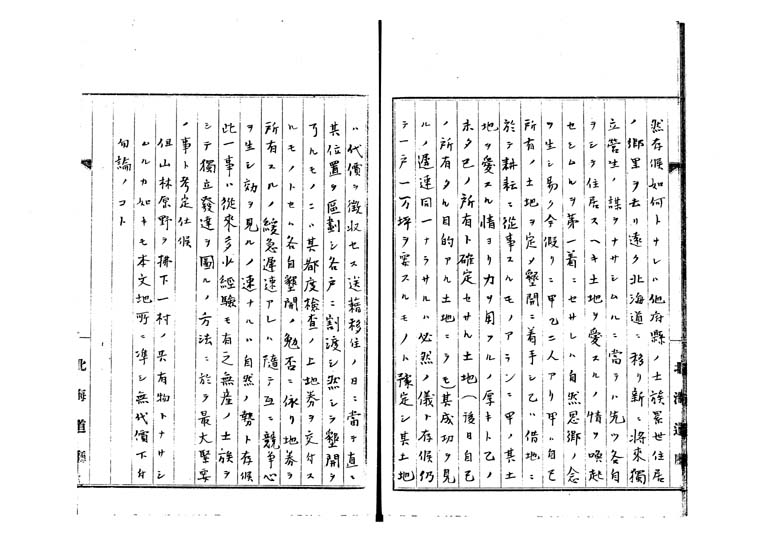 然存候如何トナレハ他府縣ノ士族累世住居
ノ郷里ヲ去リ遠ク北海道ニ移リ新ニ將來獨
立營生ノ謀ヲナサシムルニ當テハ先ツ各自
ヲシテ住居スヘキ土地ヲ愛スルノ情ヲ喚起
セシムルヲ第一着ニセサレハ自然思郷ノ念
ヲ生シ易ク今假リニ甲乙二人アリ甲ハ自己
所有ノ土地ヲ定メ墾開ニ着手シ乙ハ借地ニ
於テ耕耘ニ從事スルモノアランニ甲ノ其土
地ヲ愛スル情ヨリ力ヲ用フルノ厚キト乙ノ
未タ己ノ所有ト確定セサル土地(後日自己
ノ所有タル目的アル土地ニテモ)其成功ヲ見
ルノ遅速同一ナラサルハ必然ノ儀ト存候仍
テ一戸一万坪ヲ要スルモノト豫定シ其土地
ハ代價ヲ徴收セス送籍移住ノ日ニ當テ直ニ
其位置ヲ區劃シ各戸ニ割渡シ然シテ墾開ヲ
了ルモノニハ其都度檢査ノ上地券ヲ交付ス
ルモノトセハ各自墾開ノ勉否ニ依リ地券ヲ
所有スルノ緩急遅速アレハ隨テ互ニ競爭心
ヲ生シ効ヲ見ルノ速ナルハ自然ノ勢ト存候
此一事ハ從來多少經驗モ有之無産ノ士族ヲ
シテ獨立發達ヲ圖ルノ方法ニ於テ最大緊要
ノ事ト考定仕候
但山林原野ヲ拂下一村ノ共有物トナサシ
ムルカ如キモ本文地所ニ準シ無代價下付
勿論ノコト
北海道廳